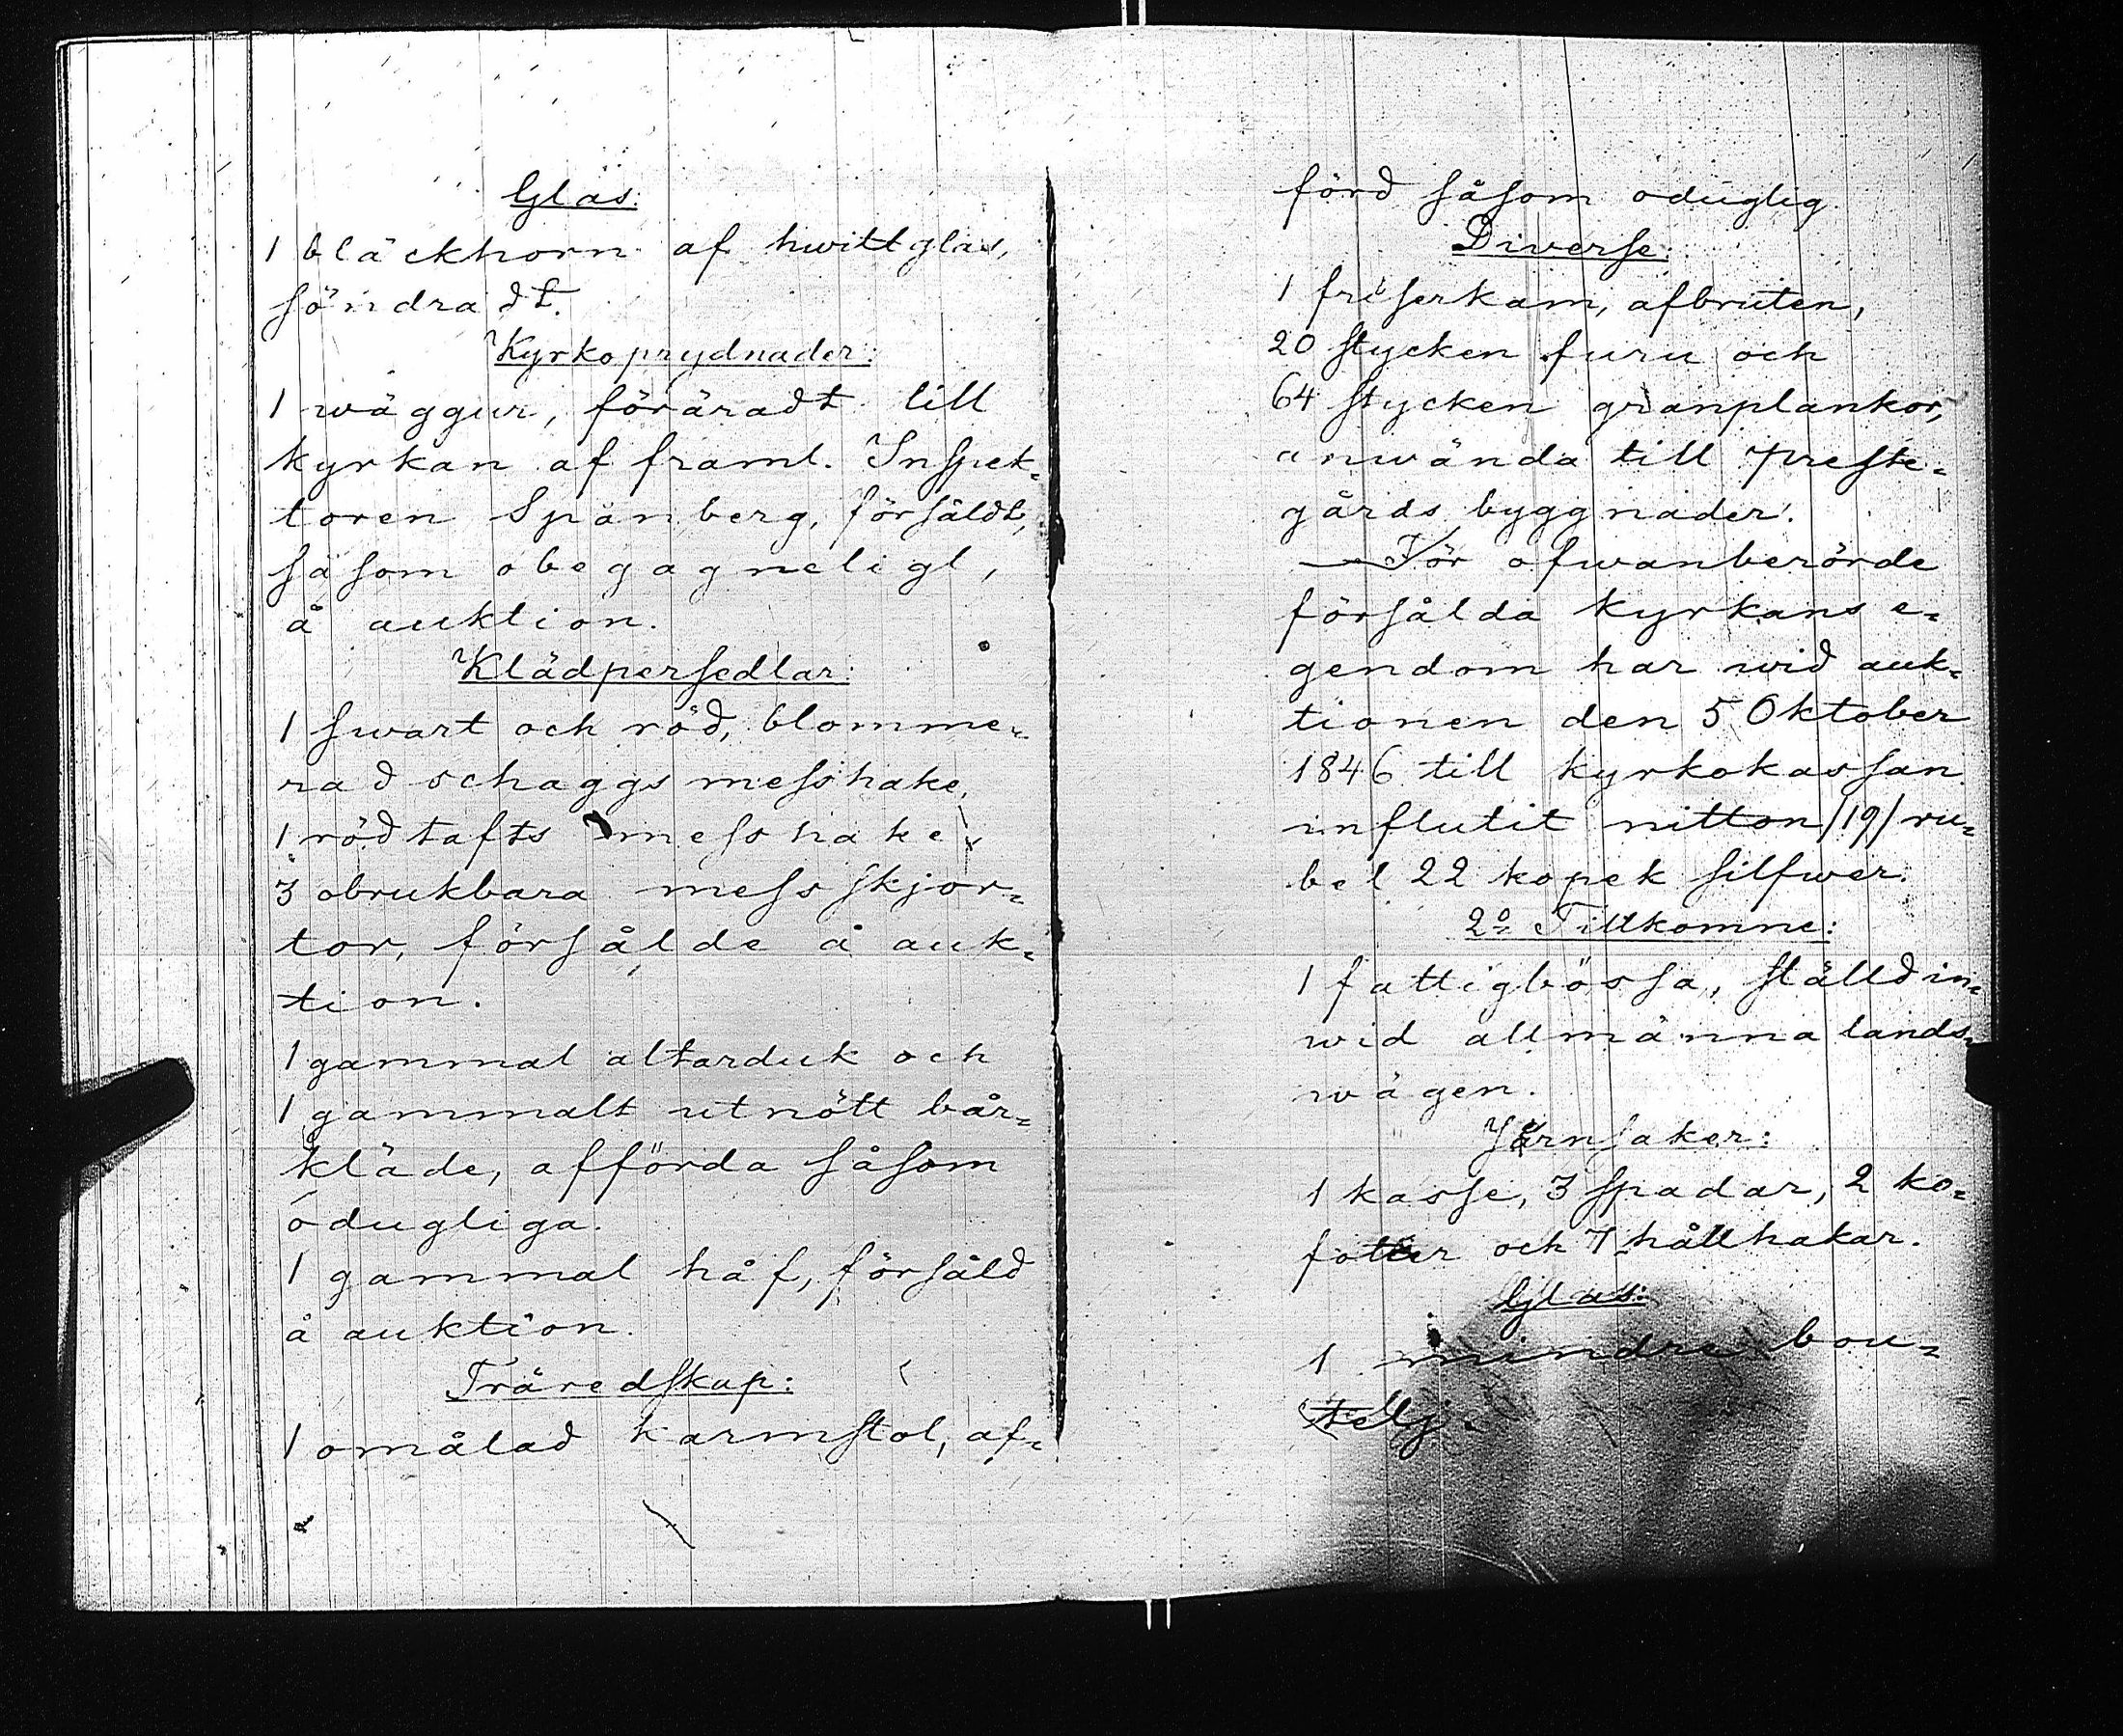 Glas:
1 bläckhorn af hwitt glas,
söndradt.
Kyrkoprydnader:
1 wäggur, föräradt till
kyrkan af framl. Inspek-
toren Spänberg, försåldt,
såsom obegagneligt,
å auktion.
Klädpersedlar:
1 swart och röd, blomme-
rad schaggs messhake,
1 röd tafts messhake,
3 obrukbara messskjor-
tor, försålde å auk-
tion.
1 gammal altarduk och
1 gammalt utnött bår-
kläde, afförda såsom
odugliga.
1 gammal håf, försåld
å auktion.
Träredskap:
1 omålad karmstol, af-
förd såsom oduglig.
Diverse:
1 friserkam, afbruten,
20 stycken furu och
64 stycken granplankor,
anwända till preste-
gårds byggnader.
— För ofwanberörde
försålda kyrkans e-
gendom har wid auk-
tionen den 5 Oktober
1846 till kyrkokassan
influtit nitton /19/ ru-
bel 22 kopek silfwer.
2o Tillkomne:
1 fattigbössa, ställd in-
wid allmänna lands-
wägen.
Järnsaker:
1 kasse, 3 spadar, 2 ko-
fötter och 7 hållhakar.
Glas:
1 mindre bou-
telj.